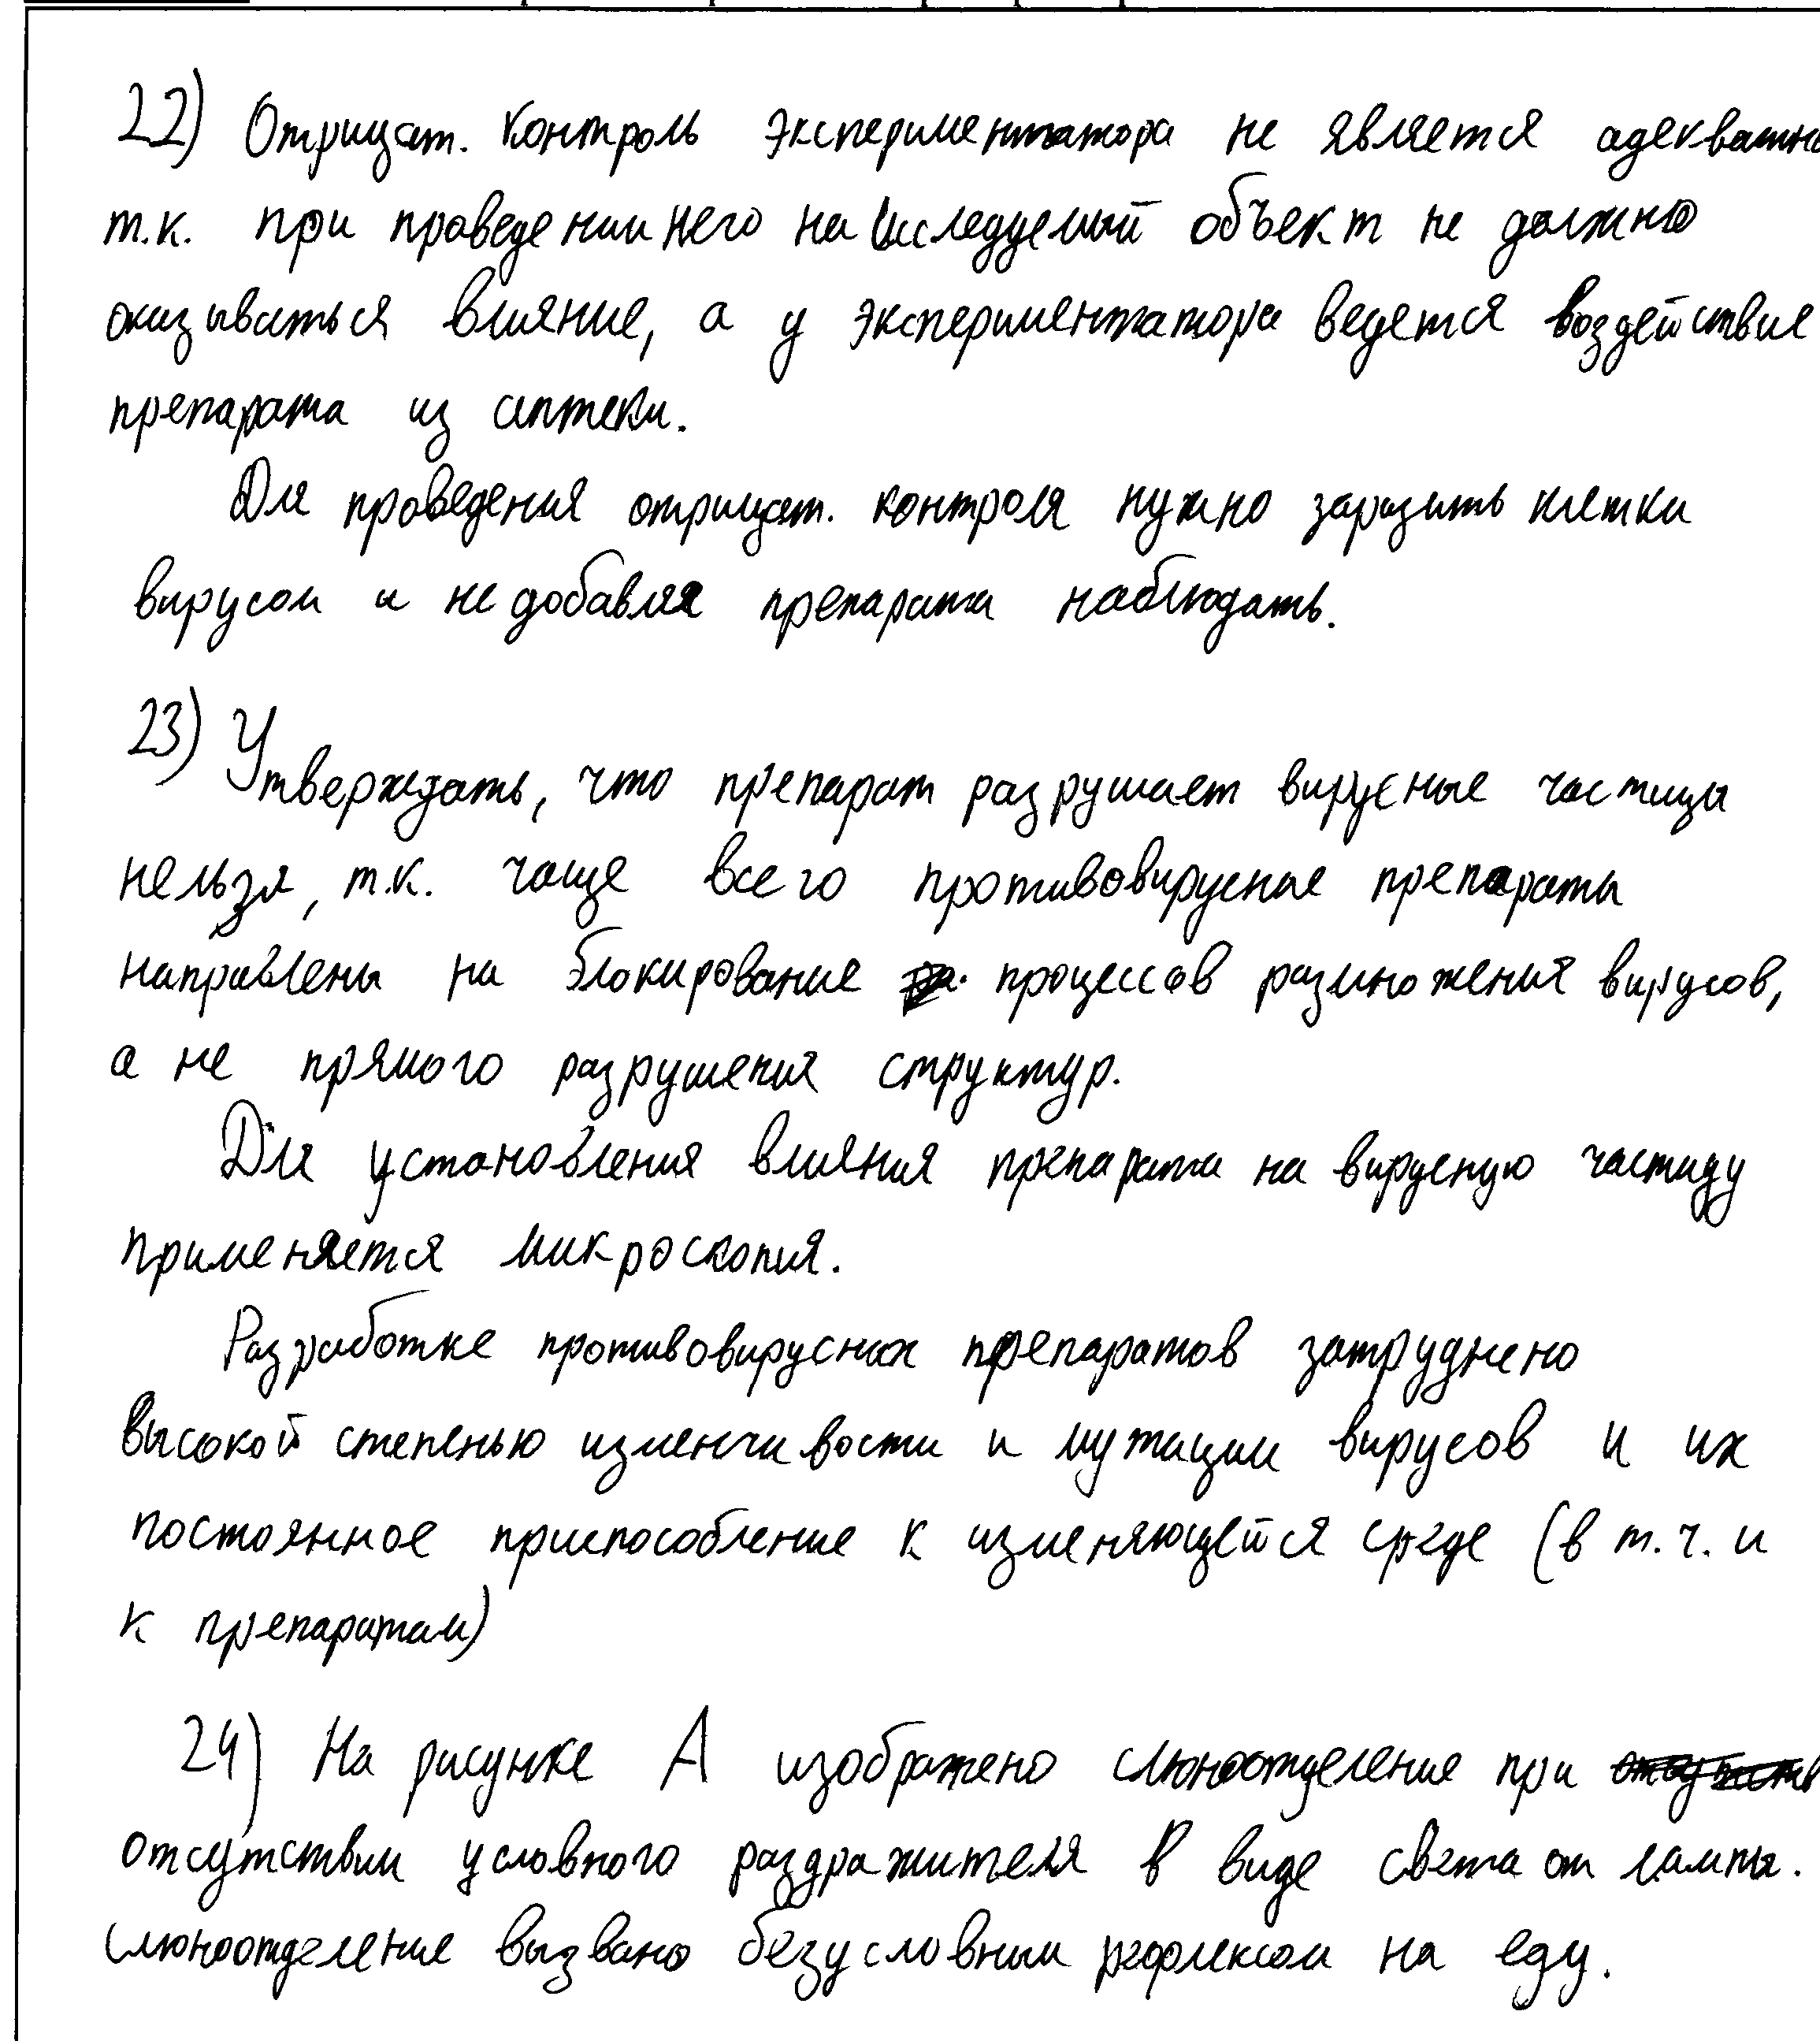 22) Отрицат. контроль экспериментатора не является адекватн
т.к. при проведении него на исследуемый объект не должно
оказываться влияние, а у экспериментатора ведется воздействие
препарата из аптеки.
Для проведения отрицат. контроля нужно заразить клетки
вирусом и не добавляя препарата наблюдать.
23) Утверждать, что препарат разрушает вирусные частицы
нельзя, т.к. чаще всего противовирусные препараты
направлены на блокирование процессов размножения вирусов,
а не прямого разрушения структур.
Для установления влияния препарата на вирусную частицу
применяется микроскопия.
Разработке противовирусных препаратов затруднено
высокой степенью изменчивости и мутации вирусов и их
постоянное приспособление к изменяющейся среде (в т.ч. и
к препаратам)
24) На рисунке А изображено слюноотделение при
отсутствии условного раздражителя в виде света от лампы.
Слюноотделение вызвано безусловным рефлексом на еду.